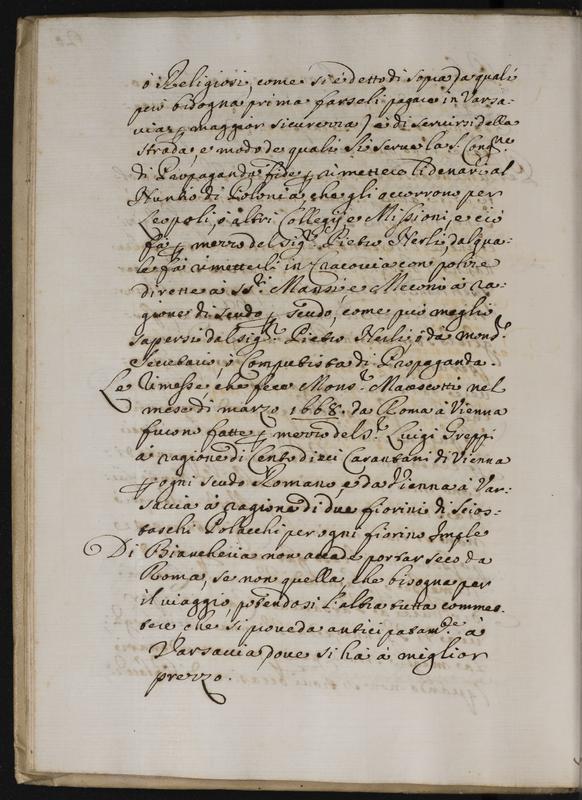 ò i Religiosi, come si è detto di sopra da quali
però bisogna prima farseli pagare in Varsa:
via p maggior sicurezza) è di servirsi della
strada, e modo de quali si serve la S. Congne
di Propaganda fide p rimettere li denari al
Nuntio di Polonia, che gli occorrono per
Leopoli, ò altri Collegij e Missioni, e ciò
fà p mezzo del Sigr Pietro Nerli, dal qua:
le fà rimetterli in Cracovia con polize
dirette à SSri Mansi e Meconi à ra:
gione di scudo p scudo, come più meglio
sapersi dal Sigr Pietro Nerli, ò da monsr
Secretario, ò Computista di Propaganda.
Le rimesse, che fece Monsr Marescotti nel
mese di marzo 1668. da Roma à Vienna
furono fatte p mezzo del Sr Luigi Greppi
à ragione di Cento dieci Carantani di Vienna
p ogni scudo Romano, e da Vienna à Var:
savia à ragione di due fiorini di
Polacchi per ogni fiorino Imple
Di Biancheria non accade portar seco da
Roma, se non quella, che bisogna per
il viaggio, potendosi l'altra tutta commet:
tere che si proveda anticipatamte à
Varsavia, dove si hà à miglior
prezzo.